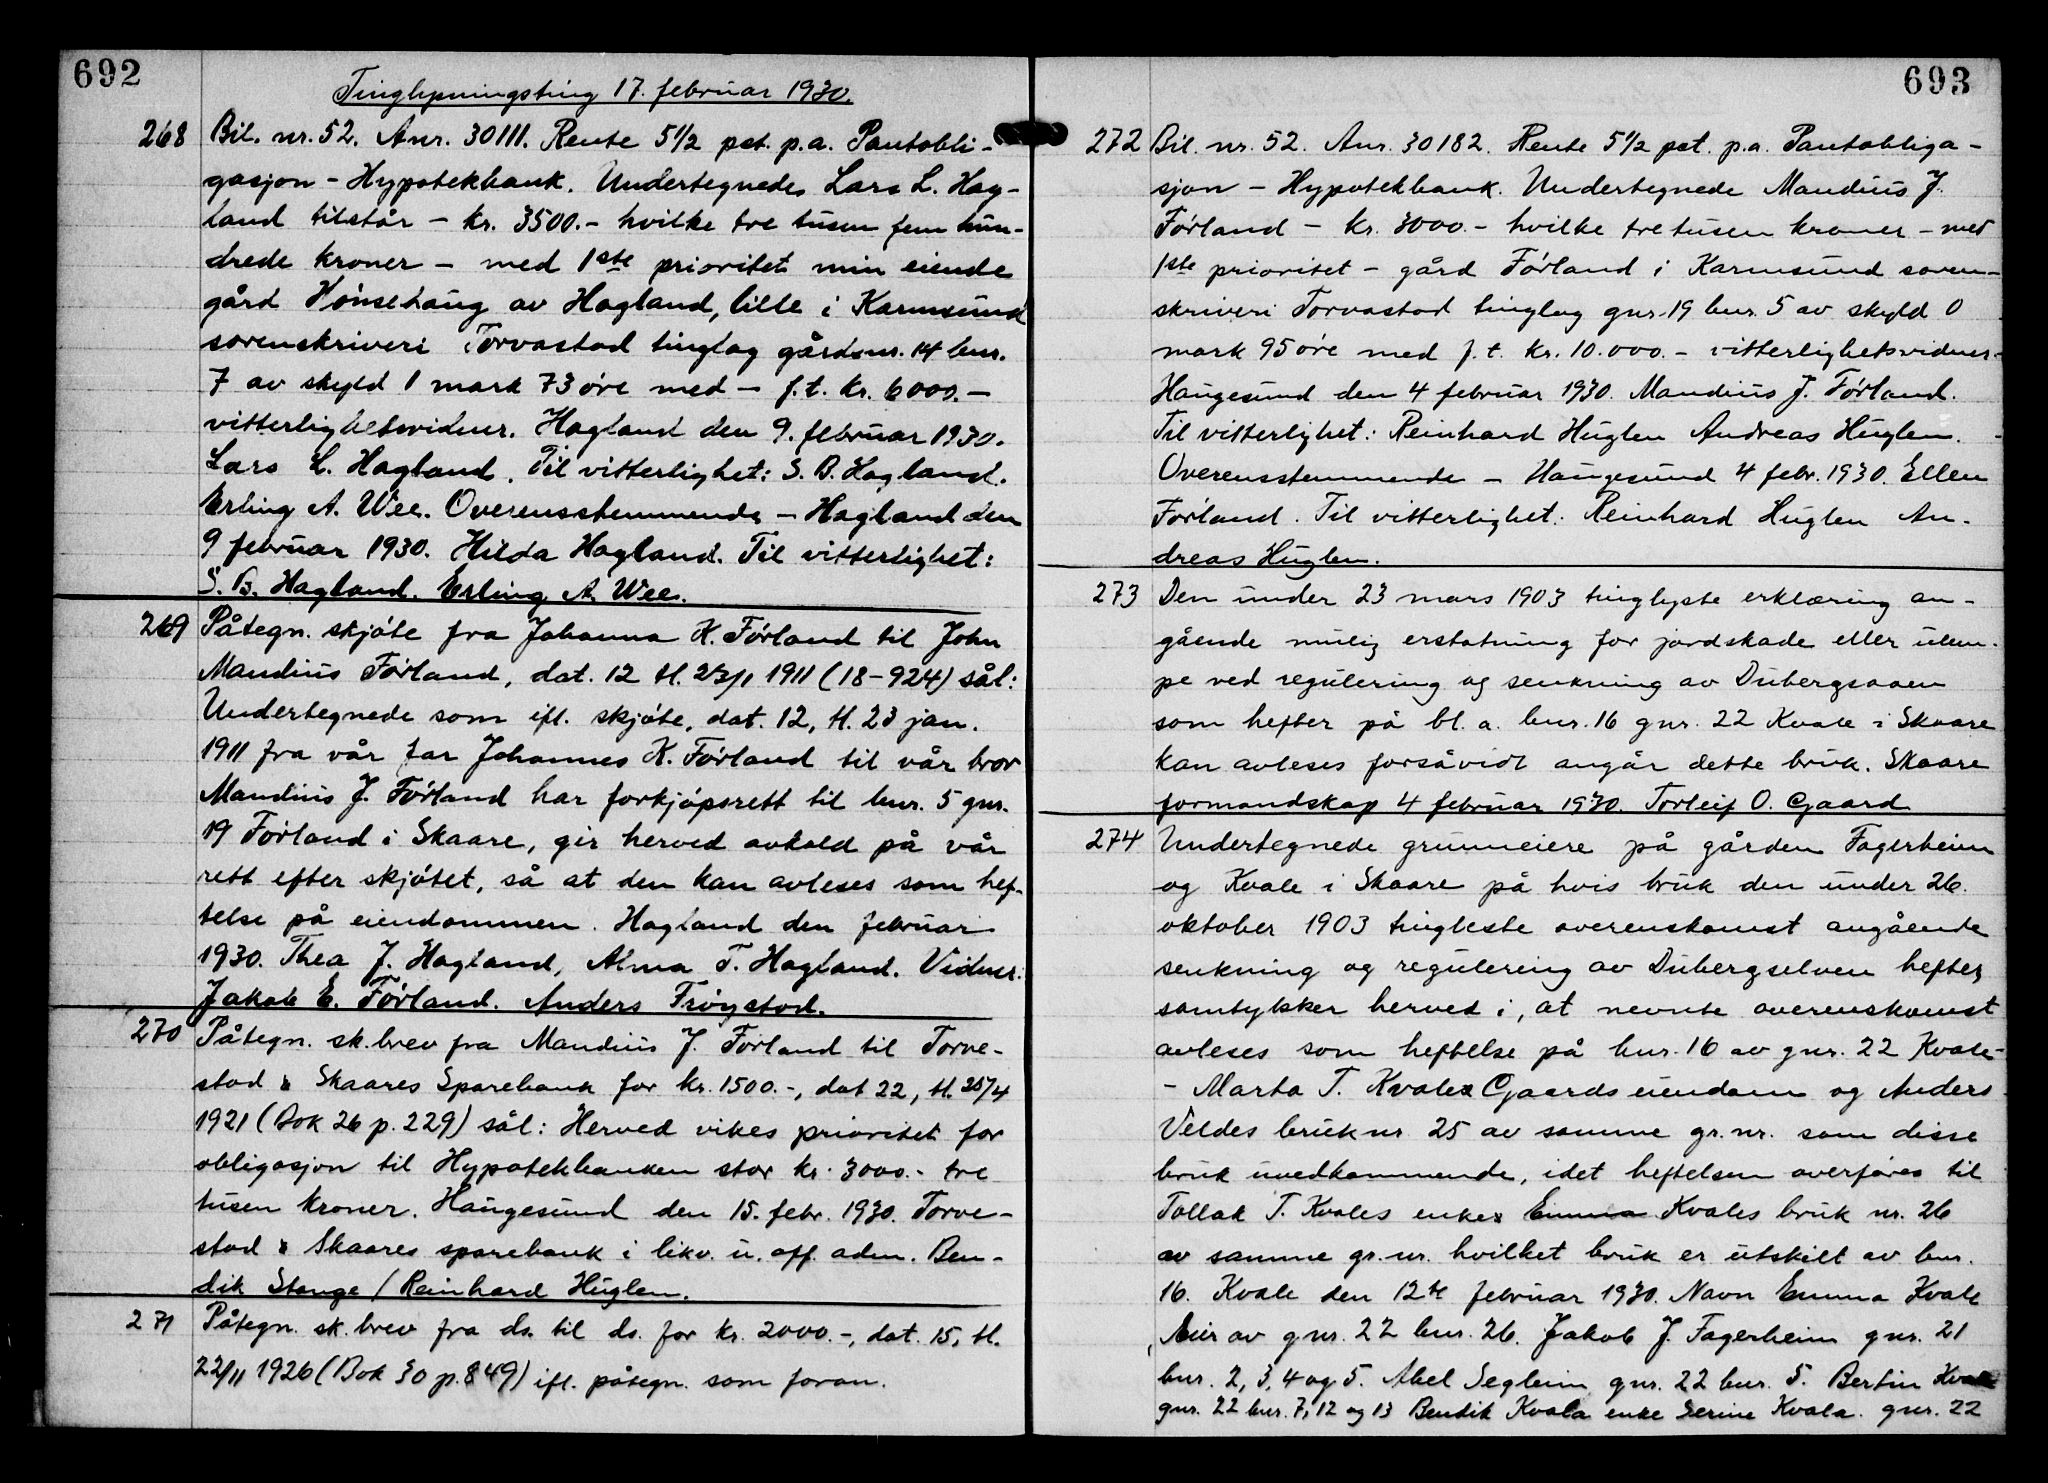 692
Tinglysningsting 17. februar 1930.
268 Bil. nr. 52. Anr. 30111. Rente 5 1/2 pct. p.a. Pantobli-
gasjon - Hypotekbank. Undertegnede Lars L. Hag-
land tilstår - kr. 3500.- hvilke tre tusen fem hun-
drede kroner - med 1ste prioritet min eiende
gård Hønsehaug av Hagland, lille i Karmsund
sorenskriveri Torvastad tinglag gårdsnr. 14 bnr.
7 av skyld 1 mark 73 øre med - f.t. kr. 6000.-
vitterlighetsvidner. Hagland den 9. februar 1930.
Lars L. Hagland. Til vitterlighet: S. B. Hagland.
Erling A. Wee. Overensstemmende - Hagland den
9 februar 1930. Hilda Hagland. Til vitterlighet:
S. B. Hagland. Erling A. Wee.
269 Påtegn. skjøte fra Johanna K. Førland til John
Mandius Førland, dat. 12 tl. 23/1 1911 (18-924) sål:
Undertegnede som ifl. skjøte, dat. 12, tl. 23 jan.
1911 fra vår far Johannes K. Førland til vår bror
Mandius J. Førland har forkjøpsrett til bnr. 5 gnr.
19 Førland i Skaare, gir herved avkald på vår
rett efter skjøtet, så at den kan avleses som hef-
telse på eiendommen. Hagland den februar
1930. Thea J. Hagland, Alma T. Hagland. Vidner:
Jakob E. Førland. Anders Frøystad.
270 Påtegn. sk.brev fra Mandius J. Førland til Torve-
stad & Skaares Sparebank for kr. 1500.-, dat 22, tl. 25/4
1921 (Bok 26 p. 229) sål: Herved vikes prioritet for
obligasjon til Hypotekbanken stor kr. 3000.- tre
tusen kroner. Haugesund den 15. febr. 1930. Torve-
stad & Skaares sparebank i likv. u. off. adm. Ben-
dik Stange / Reinhard Huglen.
271 Påtegn. sk.brev fra ds. til ds. for kr. 2000.-, dat. 15, tl.
22/11 1926 (Bok 30 p. 849) ifl. påtegn. som foran.
693
272 Bil. nr. 52. Anr. 30182. Rente 5 1/2 pct. p.a. Pantobliga-
sjon - Hypotekbank. Undertegnede Mandius J.
Førland - kr. 3000.- hvilke tretusen kroner - med
1ste prioritet - gård Førland i Karmsund soren-
skriveri Torvastad tinglag gnr. 19 bnr. 5 av skyld 0
mark 95 øre med f.t. kr. 10.000.- vitterlighetsvidner-
Haugesund den 4 februar 1930. Mandius J. Førland.
Til vitterlighet: Reinhard Huglen Andreas Huglen.
Overensstemmende - Haugesund 4 febr. 1930. Ellen
Førland. Til vitterlighet: Reinhard Huglen An-
dreas Huglen.
273 Den under 23 mars 1903 tinglyste erklæring an-
gående mulig erstatning for jordskade eller ulem-
pe ved regulering og senkning av Dubergsaaen
som hefter på bl.a. bnr. 16 gnr. 22 Kvale i Skaare
kan avleses forsåvidt angår dette bruk. Skaare
formandskap 4 februar 1930. Torleif O. Gaard
274 Undertegnede grunneiere på gården Fagerheim
og Kvale i Skaare på hvis bruk den under 26.
oktober 1903 tingleste overenskomst angående
senkning og regulering av Dubergselven hefter,
samtykker herved i, at nevnte overenskomst
avleses som heftelse på bnr. 16 av gnr. 22 Kvale-
- Marta T. Kvales Gaards eiendom og Anders
Veldes bruk nr. 25 av samme gr.nr. som disse
bruk uvedkommende, idet heftelsen overføres til
Tollak T. Kvales enkes Emma Kvales bruk nr. 26
av samme gr.nr. hvilket bruk er utskilt av bnr.
16. Kvale den 12te februar 1930. Navn Emma Kvale
Eier av gnr. 22 bnr. 26. Jakob J. Fagerheim gnr. 21
bnr. 2, 3, 4 og 5. Abel Segleim gnr. 22 bnr. 5. Bertin Kvale
gnr. 22 bnr. 7, 12 og 13 Bendik Kvala enke Serine Kvala. gnr. 22